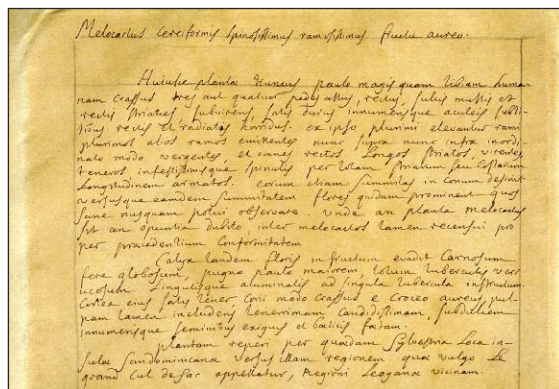 Melocactus Cereiformis spinosissimus ramosissimus fructu aureo.
Huiusce plantæ truncus paulo magis quam tibiam huma-
nam crassus tres aut quatuor pedes altus, rectus, sulcis multis et
rectis striatus, subvirens, satis durus innumerisque aculeis subti-
libus rectis et radiatis horridus. ex ipso plurimi elevantur rami
plurimos alios ramos emittentes nunc supra nunc infra inordi-
nato modo vergentes, et omnes rectos Longos striatos, virentes,
teneros, infestissimisque spinulis per totam striarum seu costarum
Longitudinem armatos. eorum etiam summitas in conum desinit
versusque eamdem summitatem flores quidam prominent quos
sane nusquam potui observare. unde an planta melocactus
sit an opuntia dubito, inter melocactos tamen recensui pro
per præcedentium Conformitatem
Calyx tandem floris in fructum evadit Carnosum
fere globosum, pugno paulo maiorem, totum tuberculis verr
ucosum singulisque ad singula tubercula instructum
Cortex eius satis tener, Corii modo crassus e Croceo aureus, pul-
pam tamen includens tenerrimam Candidissimam, subdulcem
innumerisque seminibus exiguis et fœtam.
plantam reperi per quædam sylvestria Loca in-
sulæ Sandominicanæ versus illam regionem quæ vulgo Le
grand Cul de sac appellatur, Regioni Leogana vicinam.